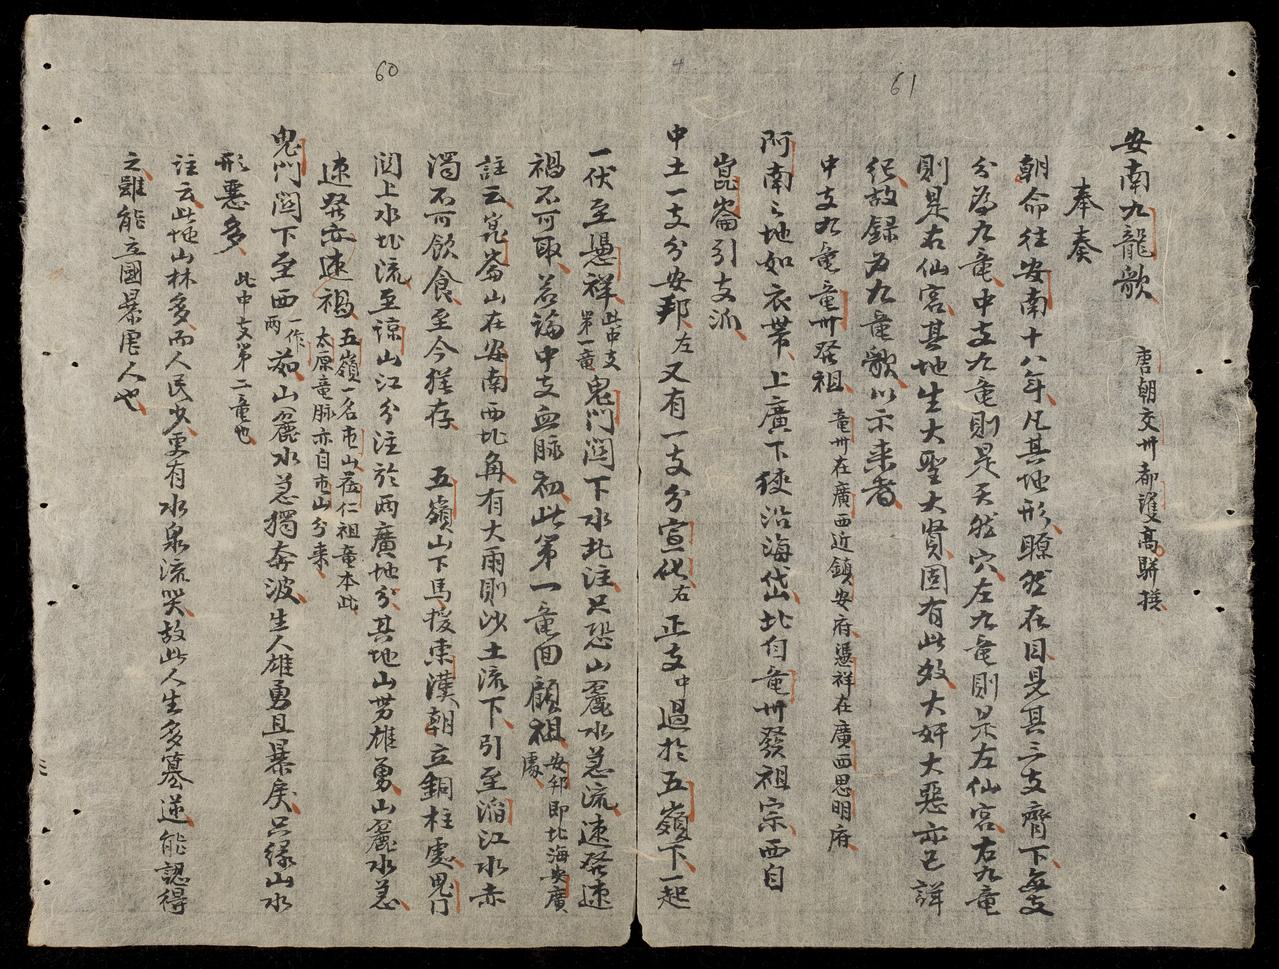 61
安南九龍歌 唐朝交州都護高駢撰
奉奏
朝命往安南十八年凡其地形瞭然在目見其三支齊下每支
分為九竜中支九竜則是天然穴左九竜則是左仙宮右九竜
則是右仙宮其地生大聖大賢固有此奴大奸大惡亦已詳
紀故録为九竜歌以示来者
中支九竜竜州發祖 竜州在廣西近鎮安府憑祥在廣西思明府
阿南之地如衣帶上廣下狹沿海岱北自竜州發祖宗西自
崑崙引支派
中土一支分安邦左又有一支分宣化右正支中過於五嶺下一起
4
60
一伏至憑祥此中支第一竜鬼门関下水北注只恐山麄水急流速發速
禍不可取若論中支血脉初此第一竜回顧祖安邦即北海安廣處
註云崑崙山在安南西北角有大雨則沙土流下引至滔江水赤
濁不可飲食至今猶存 五嶺山下馬援東漢朝立銅柱處鬼门
関上水北流至諒山江分注於两廣地分其地山势雄勇山麄水急
速發亦速禍五嶺一名市山茬仁祖竜本此太原竜脉亦自市山分来
鬼门関下至西一作两茹山麄水急獨奔波生人雄勇且暴戾只缘山水
形惡多 此中支第二竜也
注云此地山林多而人民少更有水泉流哭故此人生多篡逆能認得
之雖能立國暴虐人也